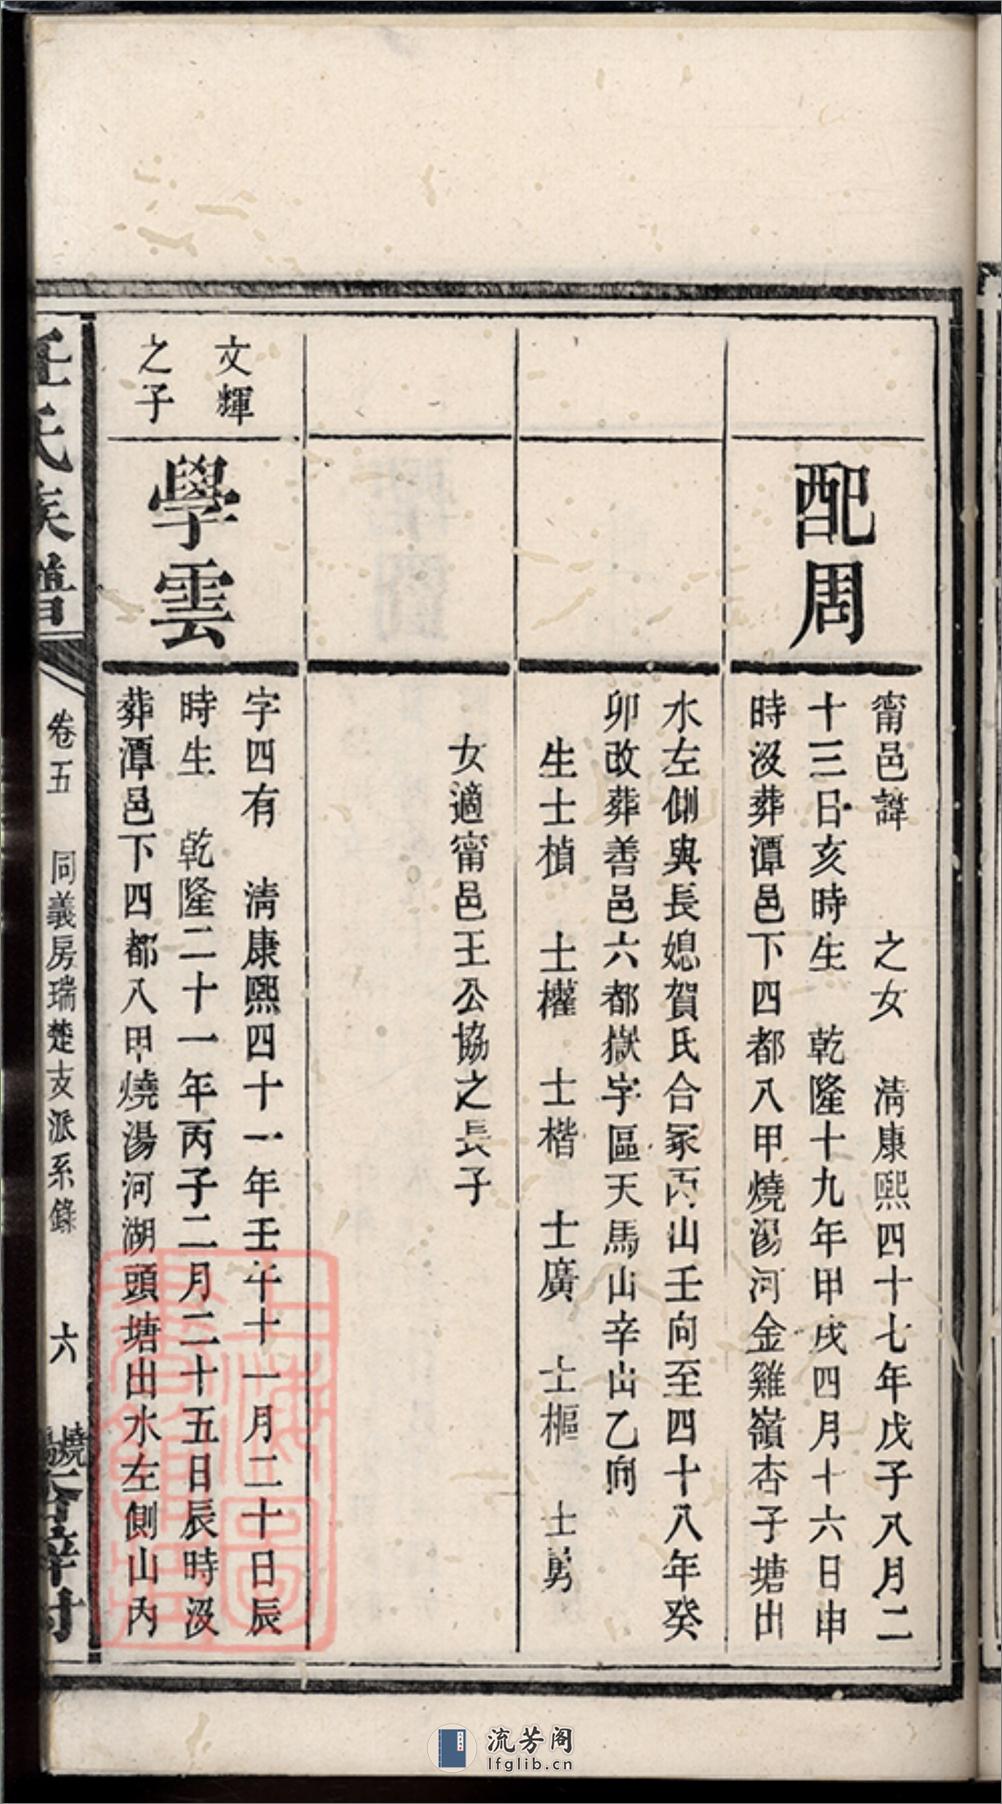 配周
甯邑諱　之女　清康熙四十七年戊子八月二
十三日亥時生　乾隆十九年甲戌四月十六日申
時沒葬潭邑下四都八甲燒湯河金雞嶺杏子塘出
水左側與長媳賀氏合冢丙山壬向至四十八年癸
卯改葬善邑六都嶽字區天馬山辛山乙向
生士楨　士權　士楷　士廣　士樞　士勇
女適甯邑王公協之長子
文輝
之子
學雲
字四有　清康熙四十一年壬午十一月二十日辰
時生　乾隆二十一年丙子二月二十五日辰時沒
葬潭邑下四都八甲燒湯河湖頭塘出水左側山丙
任氏族譜
卷五　同義房瑞楚支派系錄
六
流芳阁
lfglib.cn